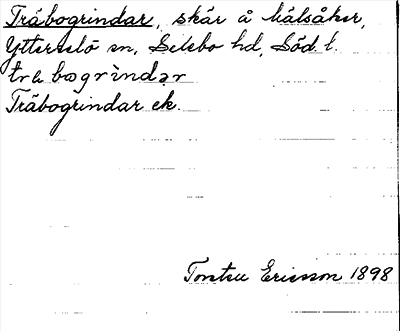 Träbogrindar, skär å Mälsåker,
Ytterselö sn, Selebo hd, Söd. l.
trȧbogrìndạr
Träbogrindar ek.
Torsten Ericsson 1898